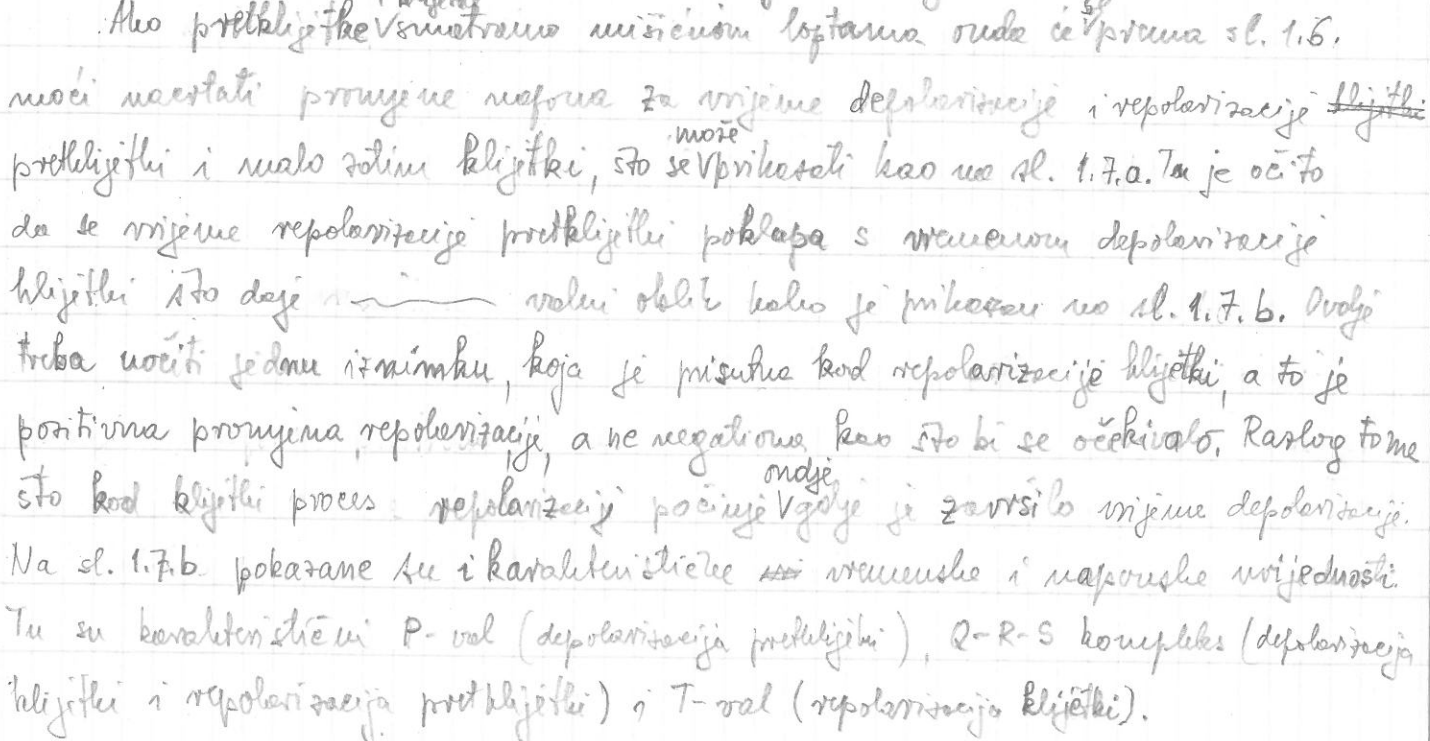 Ako pretklijetke smatramo mišićnom loptama onda će se prema sl. 1.6.
moći nacrtati promjene napona za vrijeme depolarizacije i repolarizacije klijetki
pretklijetki i malo zatim klijetki, što se može prikazati kao na sl. 1.7.a. Tu je očito
da se vrijeme repolarizacije pretklijetki poklapa s vremenom depolarizacije
klijetki što daje valni oblik kako je prikazan na sl. 1.7.b. Ovdje
treba uočiti jednu iznimku, koja je prisutna kod repolarizacije klijetki, a to je
pozitivna promjena repolarizacije, a ne negativna kao što bi se očekivalo. Razlog tome
što kod klijetki proces repolarizacije počinje ondje gdje je završilo vrijeme depolarizacije.
Na sl. 1.7.b pokazane su i karakteristične vremenske i naponske vrijednosti.
Tu su karakteristični P-val (depolarizacija pretklijetki), Q-R-S kompleks (depolarizacija
klijetki i repolarizacija pretklijetki) i T-val (repolarizacija klijetki).